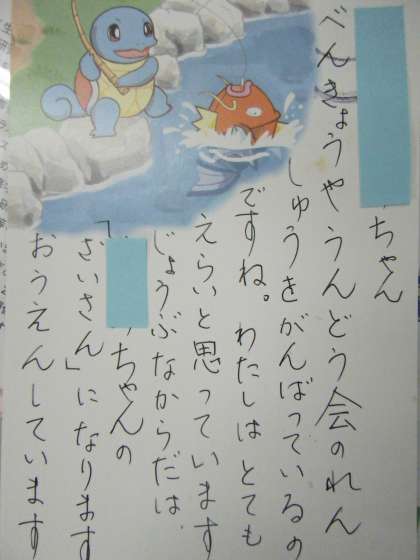 ちゃん
べんきょうやうんどう会のれん
しゅうをがんばっているの
ですね。わたしはとても
えらいと思っています
じょうぶなからだは、
「ちゃんの
ざいさん」になります
おうえんしています